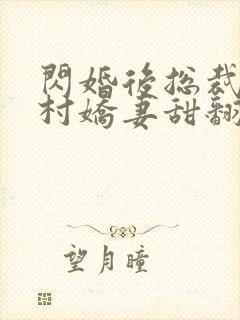 閃婚後總裁
村嬌妻甜翻
望月瞳